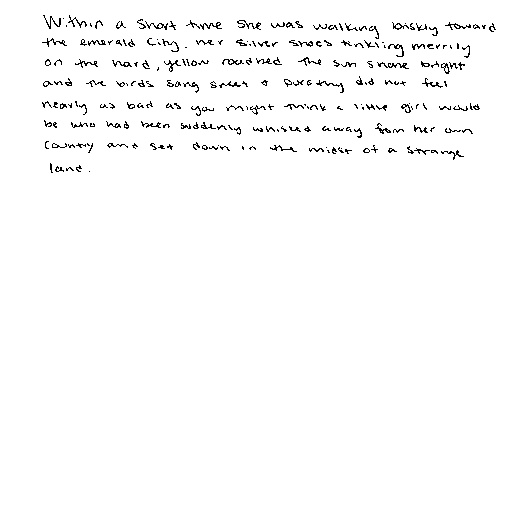 Within a short time she was walking briskly toward
the emerald City. her silver shoes tinkling merrily
on the hard, yellow roadbed the sun shone bright
and the birds sang sweet & did not feel
nearly as bad as you might think a little girl would
be who had been suddenly whisked away from her own
Country and set down in the midst of a strange
land.